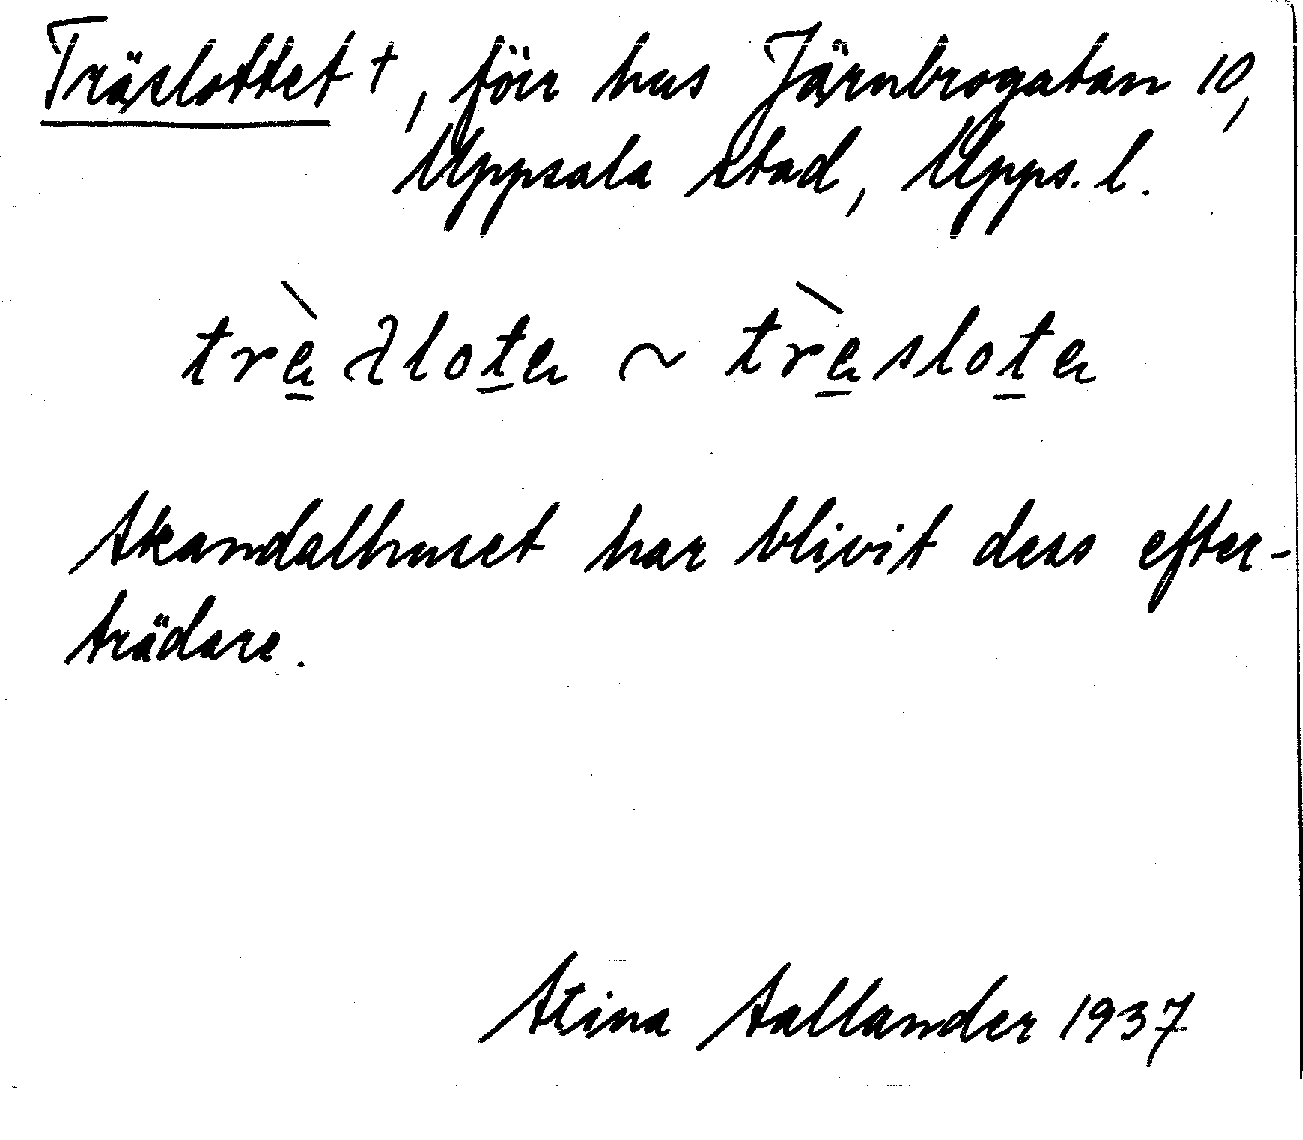 Träslottet †, förr hus Järnbrogatan 10,
Uppsala stad, Upps. l.
Skandalhuset har blivit dess efter-
trädare.
Stina Sallander 1937